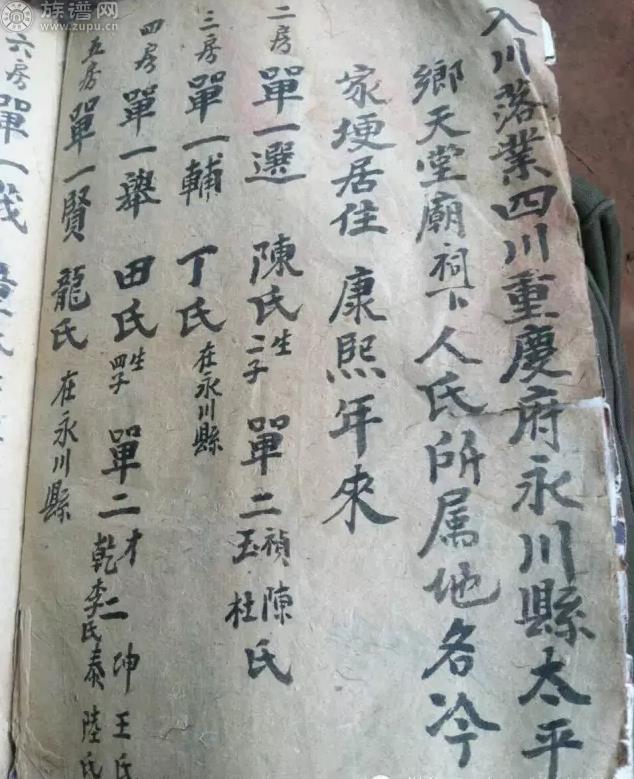 入川落業四川重慶府永川縣太平
鄉天堂廟祠下人氏所属地名冷
家埂居住 康熙年來
二房 單一選 陳氏 生二子 單二禎陳氏 玉杜
三房 單一輔 丁氏 在永川縣
四房 單一舉 田氏 生四子 單二才二坤王氏
五房 單一賢 龍氏 在永川縣 乾李氏泰陸氏
六房 單一我
族谱网
www.zupu.cn